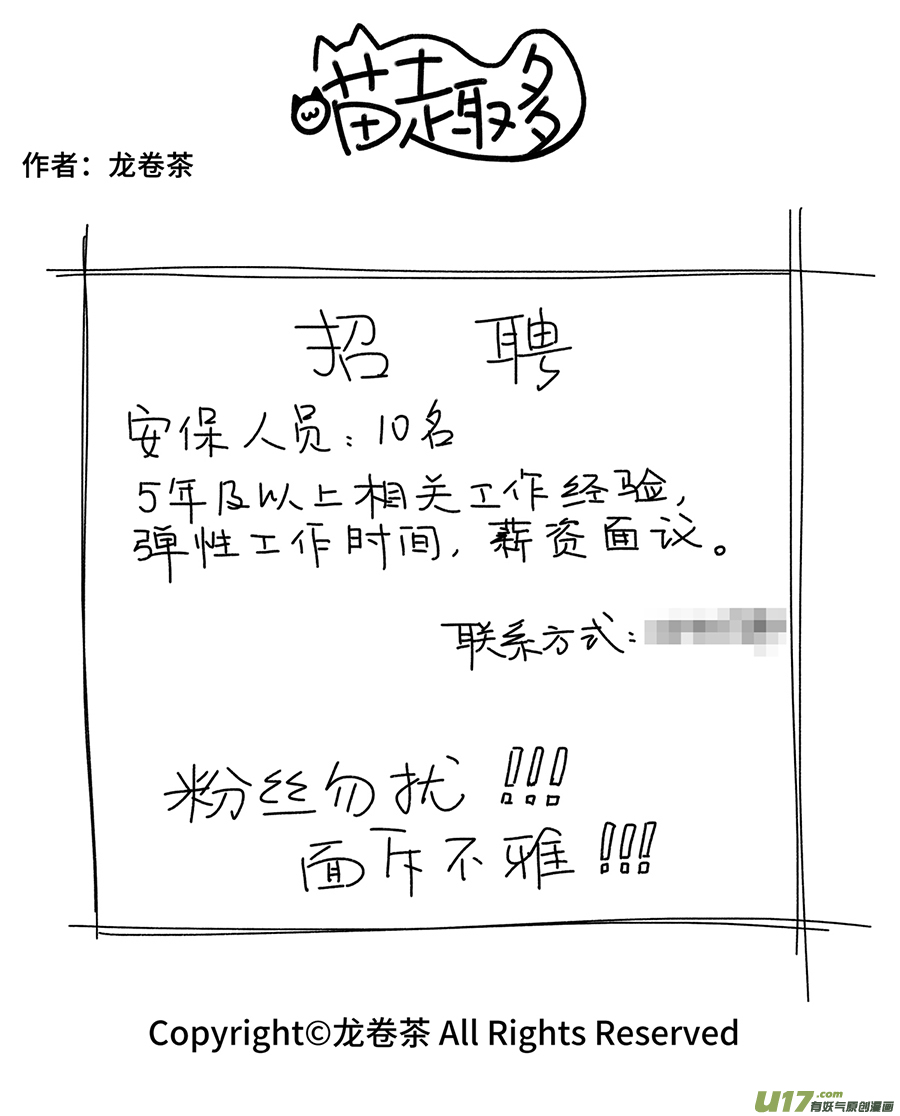 喵趣多
作者：龙卷茶
招 聘
安保人员：10名
5年及以上相关工作经验，
弹性工作时间，薪资面议。
联系方式：
粉丝勿扰!!!
面斥不雅!!!
Copyright©龙卷茶 All Rights Reserved
U17.com
有妖气原创漫画